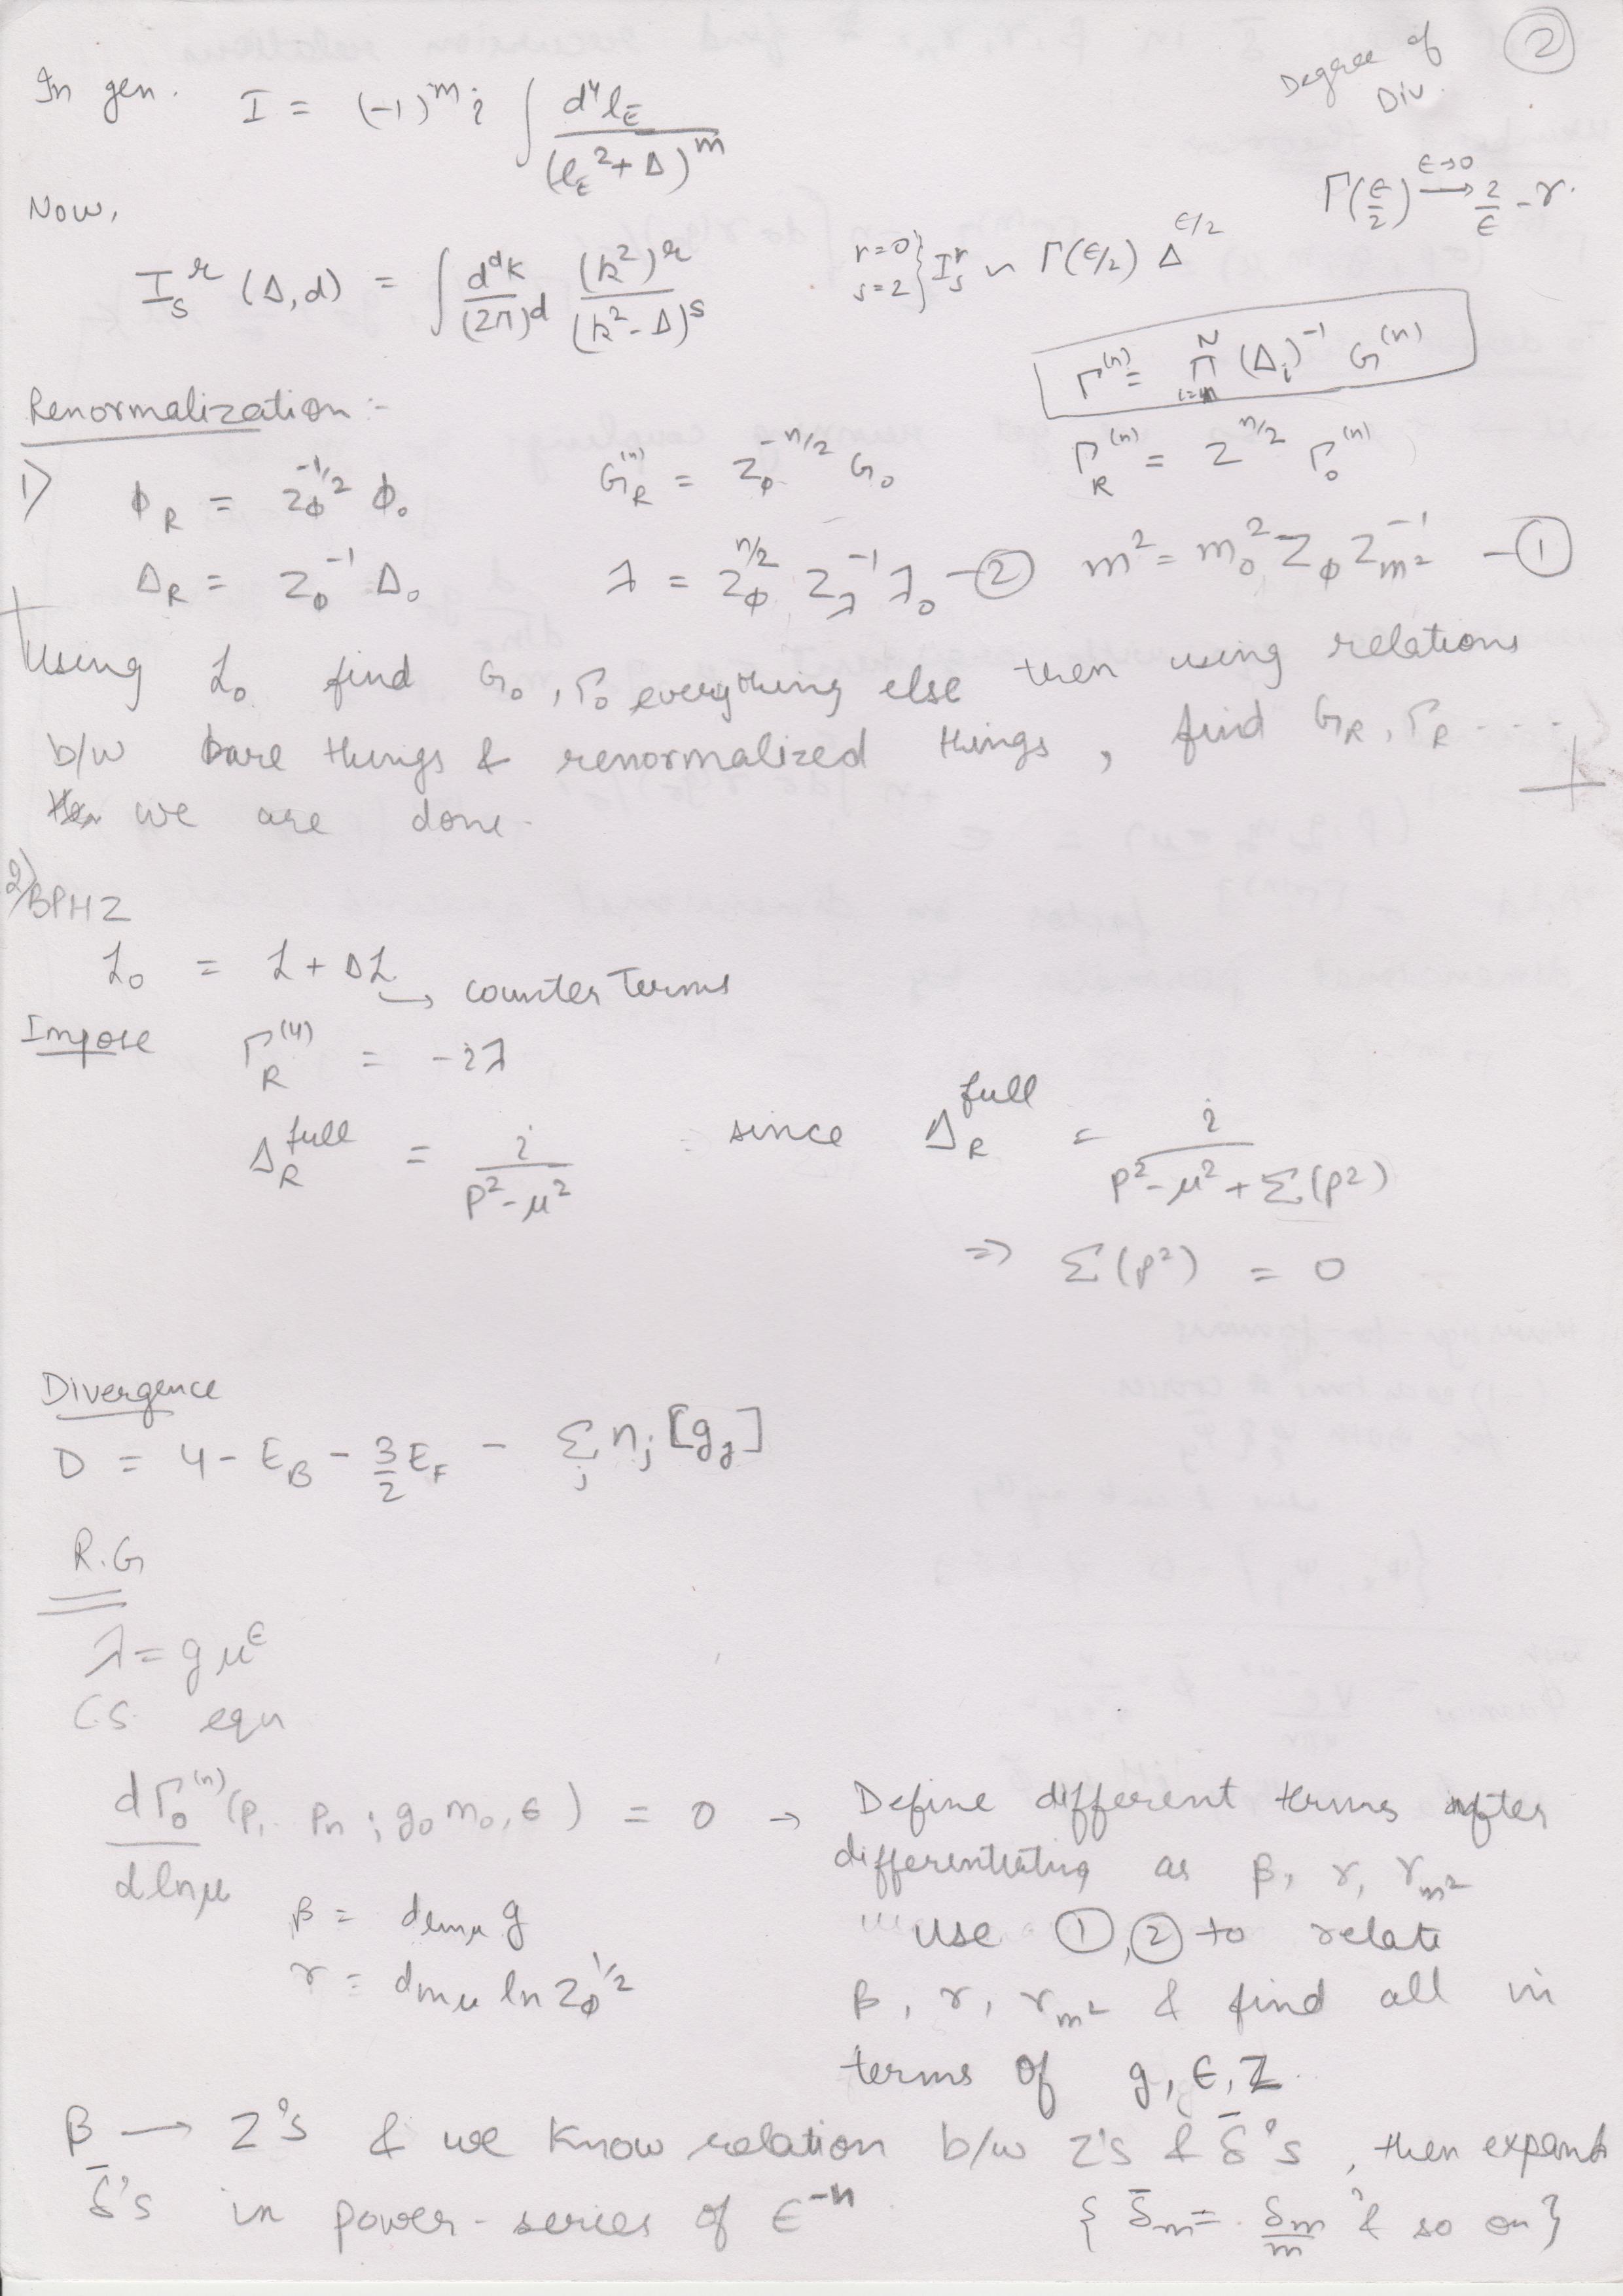 ②
Degree of
Div.
In gen. I = (-1)^m i ∫ d^4 l_E / (l_E^2 + Δ)^m
Γ(ε/2) →^{ε→0} 2/ε - γ.
Now,
I_s^r (Δ, d) = ∫ d^d k / (2π)^d (k^2)^r / (k^2 - Δ)^s
r=0 s=2 } I_s^r ~ Γ(ε/2) Δ^{ε/2}
Γ^{(n)} = Π^N (Δ_i)^{-1} G^{(n)}
Renormalization :-
1) φ_R = Z_φ^{-1/2} φ_0 G_R^{(n)} = Z_φ^{-n/2} G_0 Γ_R^{(n)} = Z^{n/2} Γ_0^{(n)}
Δ_R = Z_φ^{-1} Δ_0 λ = Z_φ^{n/2} Z_λ^{-1} λ_0 - ② m^2 = m_0^2 Z_φ Z_{m^2}^{-1} - ①
Using ℒ_0 find G_0, Γ_0 everything else then using relations
b/w bare things & renormalized things, find G_R, Γ_R ....
we are done.
2) BPHZ
ℒ_0 = ℒ + Δℒ → counter Terms
Impose Γ_R^{(4)} = -iλ
Δ_R^{full} = i / (p^2 - μ^2) since Δ_R^{full} = i / (p^2 - μ^2 + Σ(p^2))
=> Σ(p^2) = 0
Divergence
D = 4 - E_B - 3/2 E_F - Σ_j n_j [g_j]
R.G
λ = g μ^ε
C.S. equ
dΓ_0^{(n)} (p_1 .. p_n ; g_0 m_0, ε) / d ln μ = 0 → Define different terms after
differentiating as β, γ, γ_{m^2}
β = d_{lnμ} g
use ①, ② to relate
γ = d_{lnμ} ln Z_φ^{1/2}
β, γ, γ_{m^2} & find all in
terms of g, ε, Z.
β → Z's & we know relation b/w Z's & δ̄'s, then expand
δ̄'s in power-series of ε^{-n} { δ̄_m = δ_m / m & so on }